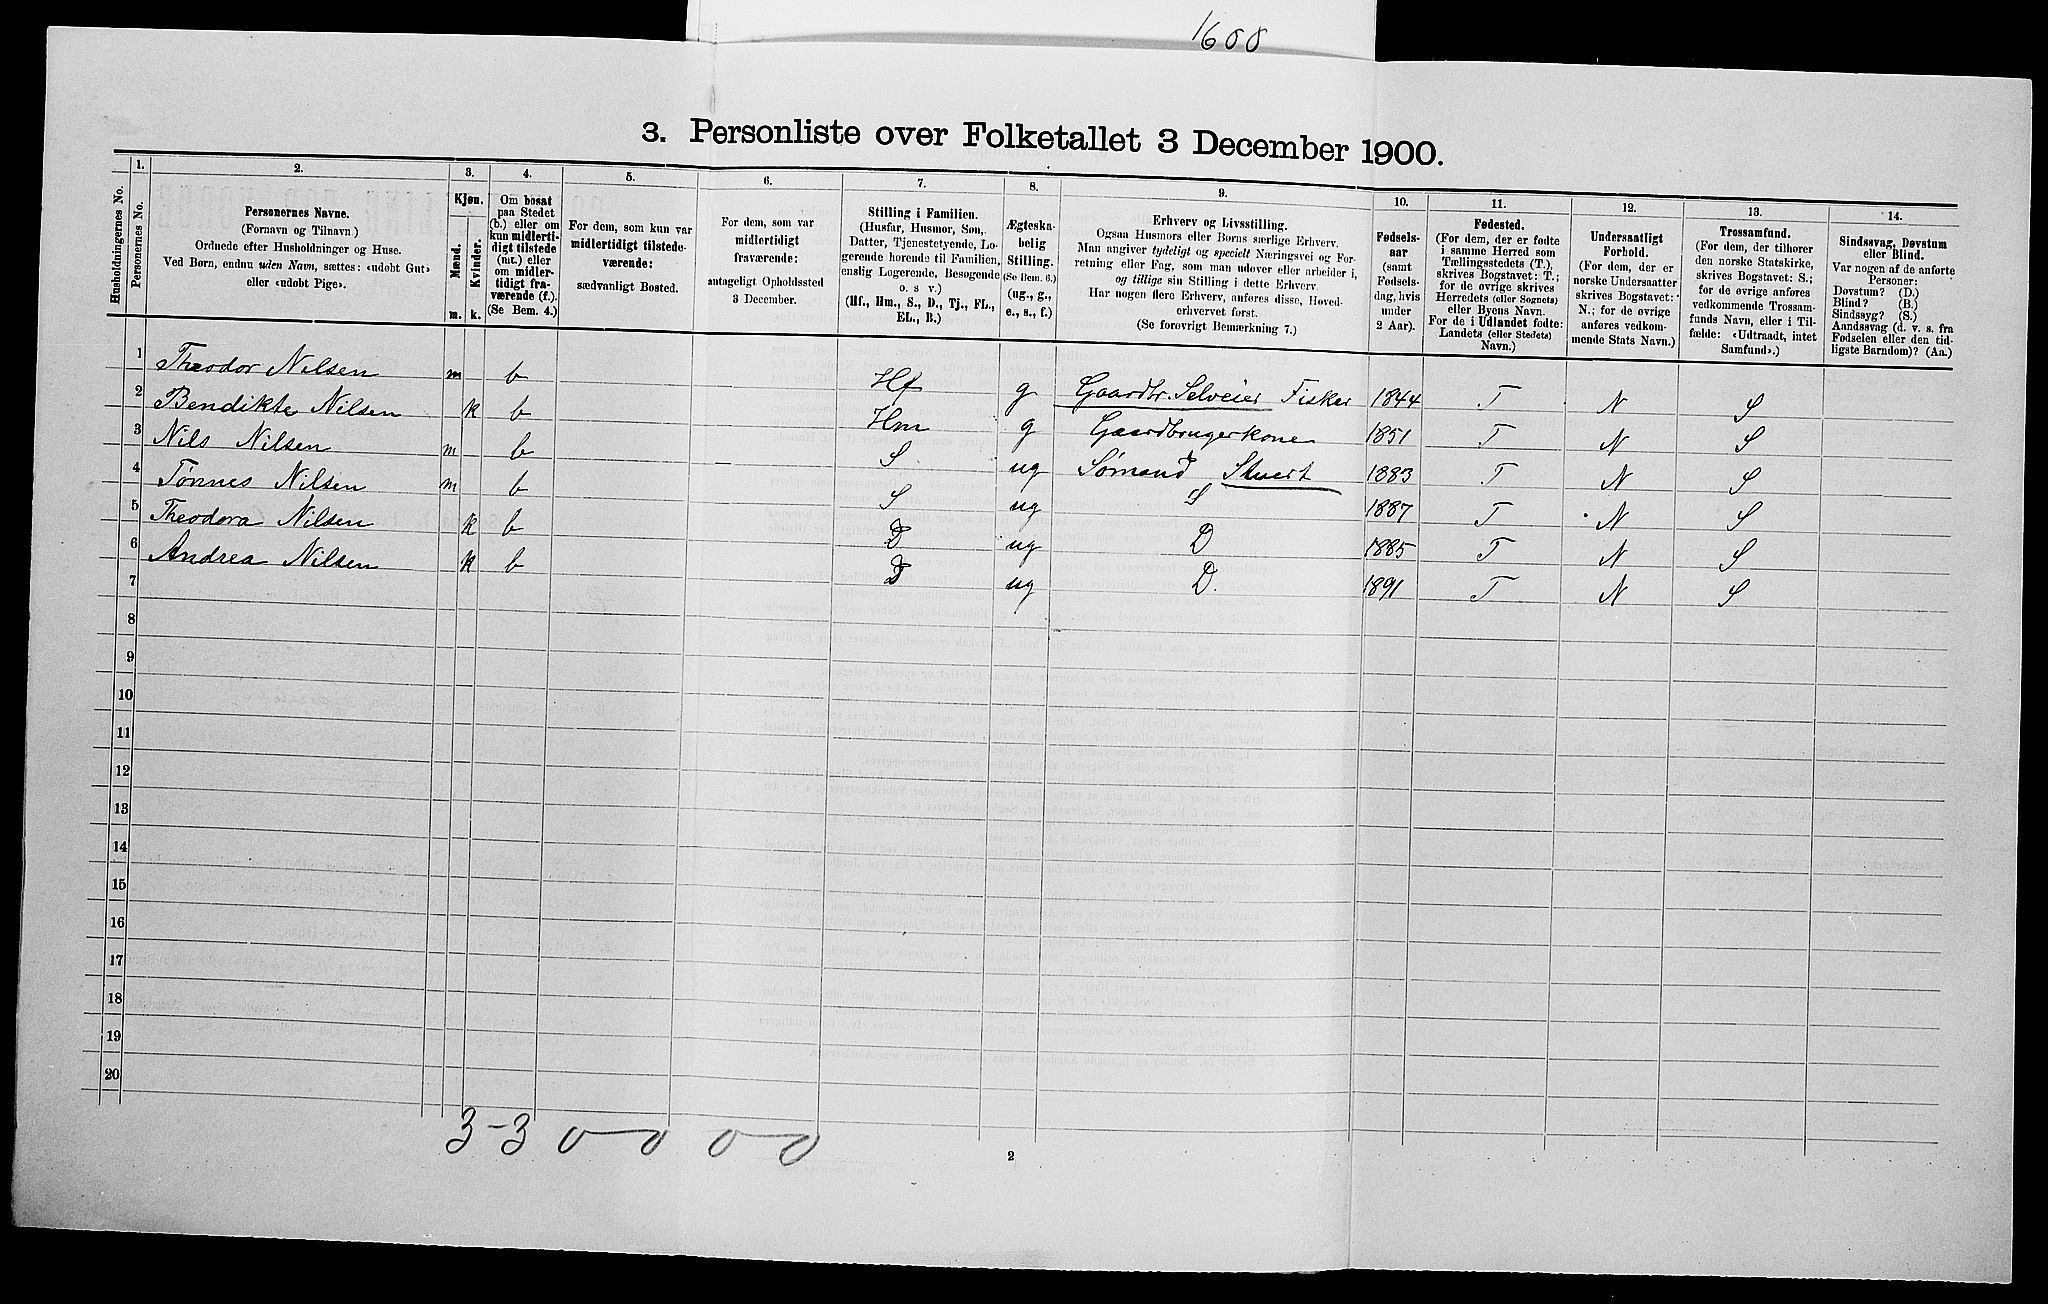 1600
3. Personliste over Folketallet 3 December 1900.
Husholdningernes No.
1.
Personernes No.
2.
Personernes Navne.
(Fornavn og Tilnavn.)
Ordnede efter Husholdninger og Huse.
Ved Børn, endnu uden Navn, sættes: «udøbt Gut»
eller «udøbt Pige».
3.
Kjøn.
Mænd.
Kvinder.
m. k.
4.
Om bosat
paa Stedet
(b.) eller om
kun midlerti-
digt tilstede
(mt.) eller
om midler-
tidigt fra-
værende (f.).
(Se Bem. 4.)
5.
For dem, som kun var
midlertidigt tilstede-
værende:
sædvanligt Bosted.
6.
For dem, som var
midlertidigt
fraværende:
antageligt Opholdssted
3 December.
7.
Stilling i Familien.
(Husfar, Husmor, Søn,
Datter, Tjenestetyende, Lo-
gerende hørende til Familien,
enslig Logerende, Besøgende
o. s v.)
(Hf., Hm., S., D., Tj., FL.,
EL., B.)
8.
Ægteska-
belig
Stilling.
(Se Bem. 6.)
(ug., g.,
e., s., f.)
9.
Erhverv og Livsstilling.
Ogsaa Husmors eller Børns særlige Erhverv.
Man angiver tydeligt og specielt Næringsvei og For-
retning eller Fag, som man udøver eller arbeider i,
og tillige sin Stilling i dette Erhverv.
Har nogen flere Erhverv, anføres disse, Hoved-
erhvervet først.
(Se forøvrigt Bemærkning 7.)
10.
Fødsels-
aar
(samt
Fødsels-
dag, hvis
under
2 Aar).
11.
Fødested.
(For dem, der er fødte
i samme Herred som
Tællingsstedets (T.),
skrives Bogstavet: T.;
for de øvrige skrives
Herredets (eller Sognets)
eller Byens Navn.
For de i Udlandet fødte:
Landets (eller Stedets)
Navn.)
12.
Undersaatligt
Forhold.
(For dem, der er
norske Undersaatter
skrives Bogstavet:
N.; for de øvrige
anføres vedkom-
mende Stats Navn.)
13.
Trossamfund.
(For dem, der tilhører
den norske Statskirke,
skrives Bogstavet: S.;
for de øvrige anføres
vedkommende Trossam-
funds Navn, eller i Til-
fælde: «Udtraadt, intet
Samfund».)
14.
Sindssvag, Døvstum
eller Blind.
Var nogen af de anførte
Personer:
Døvstum? (D.)
Blind? (B.)
Sindssyg? (S.)
Aandssvag (d. v. s. fra
Fødselen eller den tid-
ligste Barndom)? (Aa.)
1 Theodor Nilsen m b Hf g Gaardbr. Selveier Fisker 1844 T N S
2 Bendikte Nilsen k b Hm g Gaardbrugerkone 1851 T N S
3 Nils Nilsen m b S ug Sømand 1883 T N S
4 Tønnes Nilsen m b S ug S 1887 T N S
5 Theodora Nilsen k b D ug D 1885 T N S
6 Andrea Nilsen k b D ug D. 1891 T N S
7
8
9
10
11
12
13
14
15
16
17
18
19
20
3-3 0-0 0-0
2